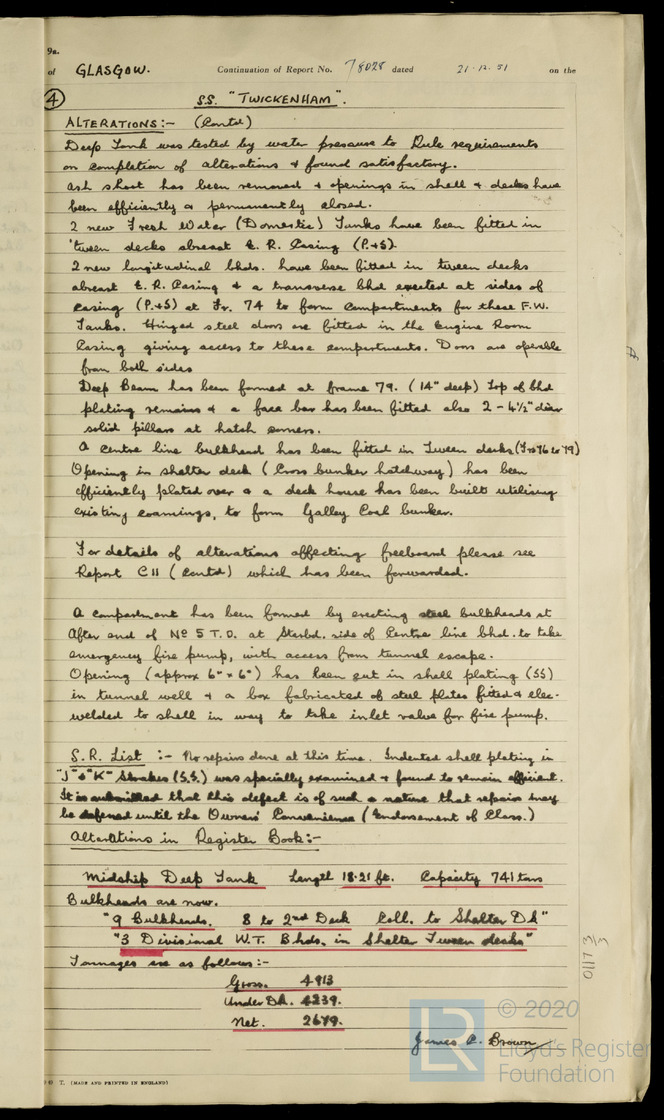 9a.
of GLASGOW. Continuation of Report No. 78028 dated 21.12.51 on the
4
S.S. "TWICKENHAM".
ALTERATIONS:- (Contd)
Deep Tank was tested by water pressure to Rule requirements
on completion of alterations & found satisfactory.
Ash shoot has been removed & openings in shell & decks have
been efficiently & permanently closed.
2 new Fresh Water (Domestic) Tanks have been fitted in
'tween decks abreast E. R. Casing (P.+S)
2 new longitudinal bhds. have been fitted in tween decks
abreast E. R. Casing & a transverse bhd erected at sides of
casing (P.+S) at Fr. 74 to form compartments for these F.W.
Tanks. Hinged steel doors are fitted in the Engine Room
Casing giving access to these compartments. Doors are operable
from both sides
Deep Beam has been formed at frame 79. (14" deep) Top of bhd
plating remains & a face bar has been fitted also 2 - 4½" diar
solid pillars at hatch corners.
A centre line bulkhead has been fitted in Tween decks (Frs 76 to 79)
Opening in shelter deck (Cross bunker hatchway) has been
efficiently plated over & a deck house has been built utilising
existing coamings, to form Galley Coal bunker.
For details of alterations affecting freeboard please see
Report C11 (Contd) which has been forwarded.
A compartment has been formed by erecting steel bulkheads at
After end of No 5 T.D. at Starbd. side of Centre line bhd. to take
emergency fire pump, with access from tunnel escape.
Opening (approx 6" x 6") has been cut in shell plating (SS)
in tunnel well & a box fabricated of steel plates fitted & elec-
welded to shell in way to take inlet valve for fire pump.
S.R. List :- No repairs done at this time. Indented shell plating in
"J" & "K" Strakes (S.S.) was specially examined & found to remain efficient.
It is submitted that this defect is of such a nature that repairs may
be deferred until the Owners' Convenience (Endorsement of Class.)
Alterations in Register Book:-
Midship Deep Tank Length 18.21 ft. Capacity 741 tons
Bulkheads are now.
"9 Bulkheads. 8 to 2nd Deck Coll. to Shelter Dk"
"3 Divisional W.T. Bhds. in Shelter Tween decks"
Tonnages are as follows:-
Gross. 4913
Under Dk. 4239.
Net. 2679.
James C. Brown
0117 3/3
© 2020
LR
Lloyd's Register
Foundation
T. (MADE AND PRINTED IN ENGLAND)